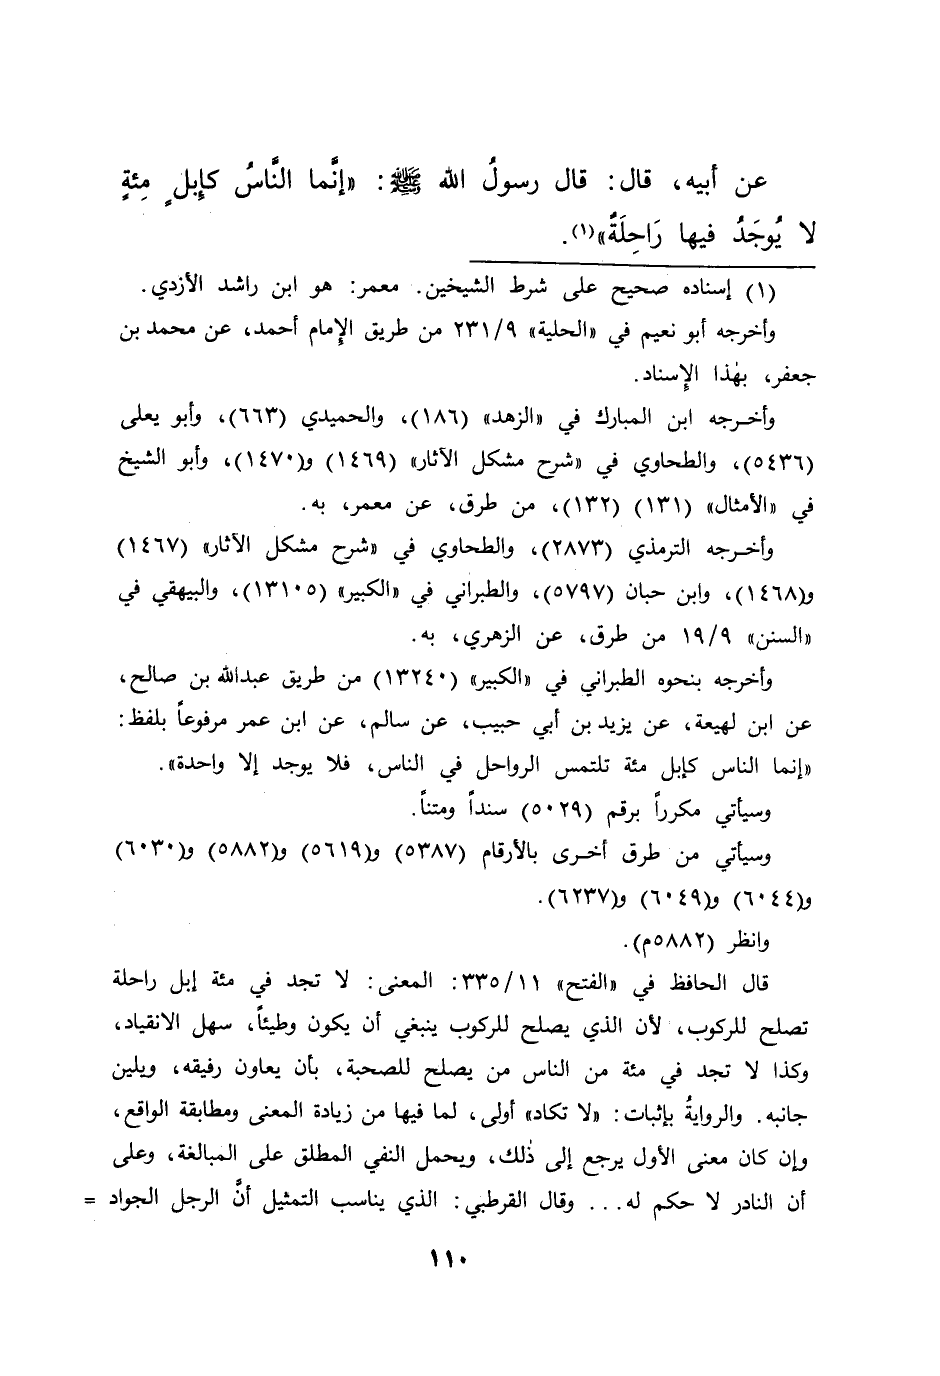 عن أبيه، قال: قال رسولُ الله ﷺ: «إنَّما النَّاسُ كإبلٍ مِئةٍ
لا يُوجَدُ فيها رَاحِلَةٌ»(١).
(١) إسناده صحيح على شرط الشيخين. معمر: هو ابن راشد الأزدي.
وأخرجه أبو نعيم في «الحلية» ٢٣١/٩ من طريق الإمام أحمد، عن محمد بن
جعفر، بهٰذا الإسناد.
وأخـرجه ابن المبارك في «الزهد» (١٨٦)، والحميدي (٦٦٣)، وأبو يعلى
(٥٤٣٦)، والطحاوي في «شرح مشكل الآثار» (١٤٦٩) و(١٤٧٠)، وأبو الشيخ
في «الأمثال» (١٣١) (١٣٢)، من طرق، عن معمر، به.
وأخـرجه الترمذي (٢٨٧٣)، والطحاوي في «شرح مشكل الآثار» (١٤٦٧)
و(١٤٦٨)، وابن حبان (٥٧٩٧)، والطبراني في «الكبير» (١٣١٠٥)، والبيهقي في
«السنن» ١٩/٩ من طرق، عن الزهري، به.
وأخرجه بنحوه الطبراني في «الكبير» (١٣٢٤٠) من طريق عبدالله بن صالح،
عن ابن لهيعة، عن يزيد بن أبي حبيب، عن سالم، عن ابن عمر مرفوعاً بلفظ:
«إنما الناس كإبل مئة تلتمس الرواحل في الناس، فلا يوجد إلا واحدة».
وسيأتي مكرراً برقم (٥٠٢٩) سنداً ومتناً.
وسيأتي من طرق أخـرى بالأرقام (٥٣٨٧) و(٥٦١٩) و(٥٨٨٢) و(٦٠٣٠)
و(٦٠٤٤) و(٦٠٤٩) و(٦٢٣٧).
وانظر (٥٨٨٢م).
قال الحافظ في «الفتح» ٣٣٥/١١: المعنى: لا تجد في مئة إبل راحلة
تصلح للركوب، لأن الذي يصلح للركوب ينبغي أن يكون وطيئاً، سهل الانقياد،
وكذا لا تجد في مئة من الناس من يصلح للصحبة، بأن يعاون رفيقه، ويلين
جانبه. والروايةُ بإثبات: «لا تكاد» أولى، لما فيها من زيادة المعنى ومطابقة الواقع،
وإن كان معنى الأول يرجع إلى ذٰلك، ويحمل النفي المطلق على المبالغة، وعلى
أن النادر لا حكم له... وقال القرطبي: الذي يناسب التمثيل أنَّ الرجل الجواد =
١١٠